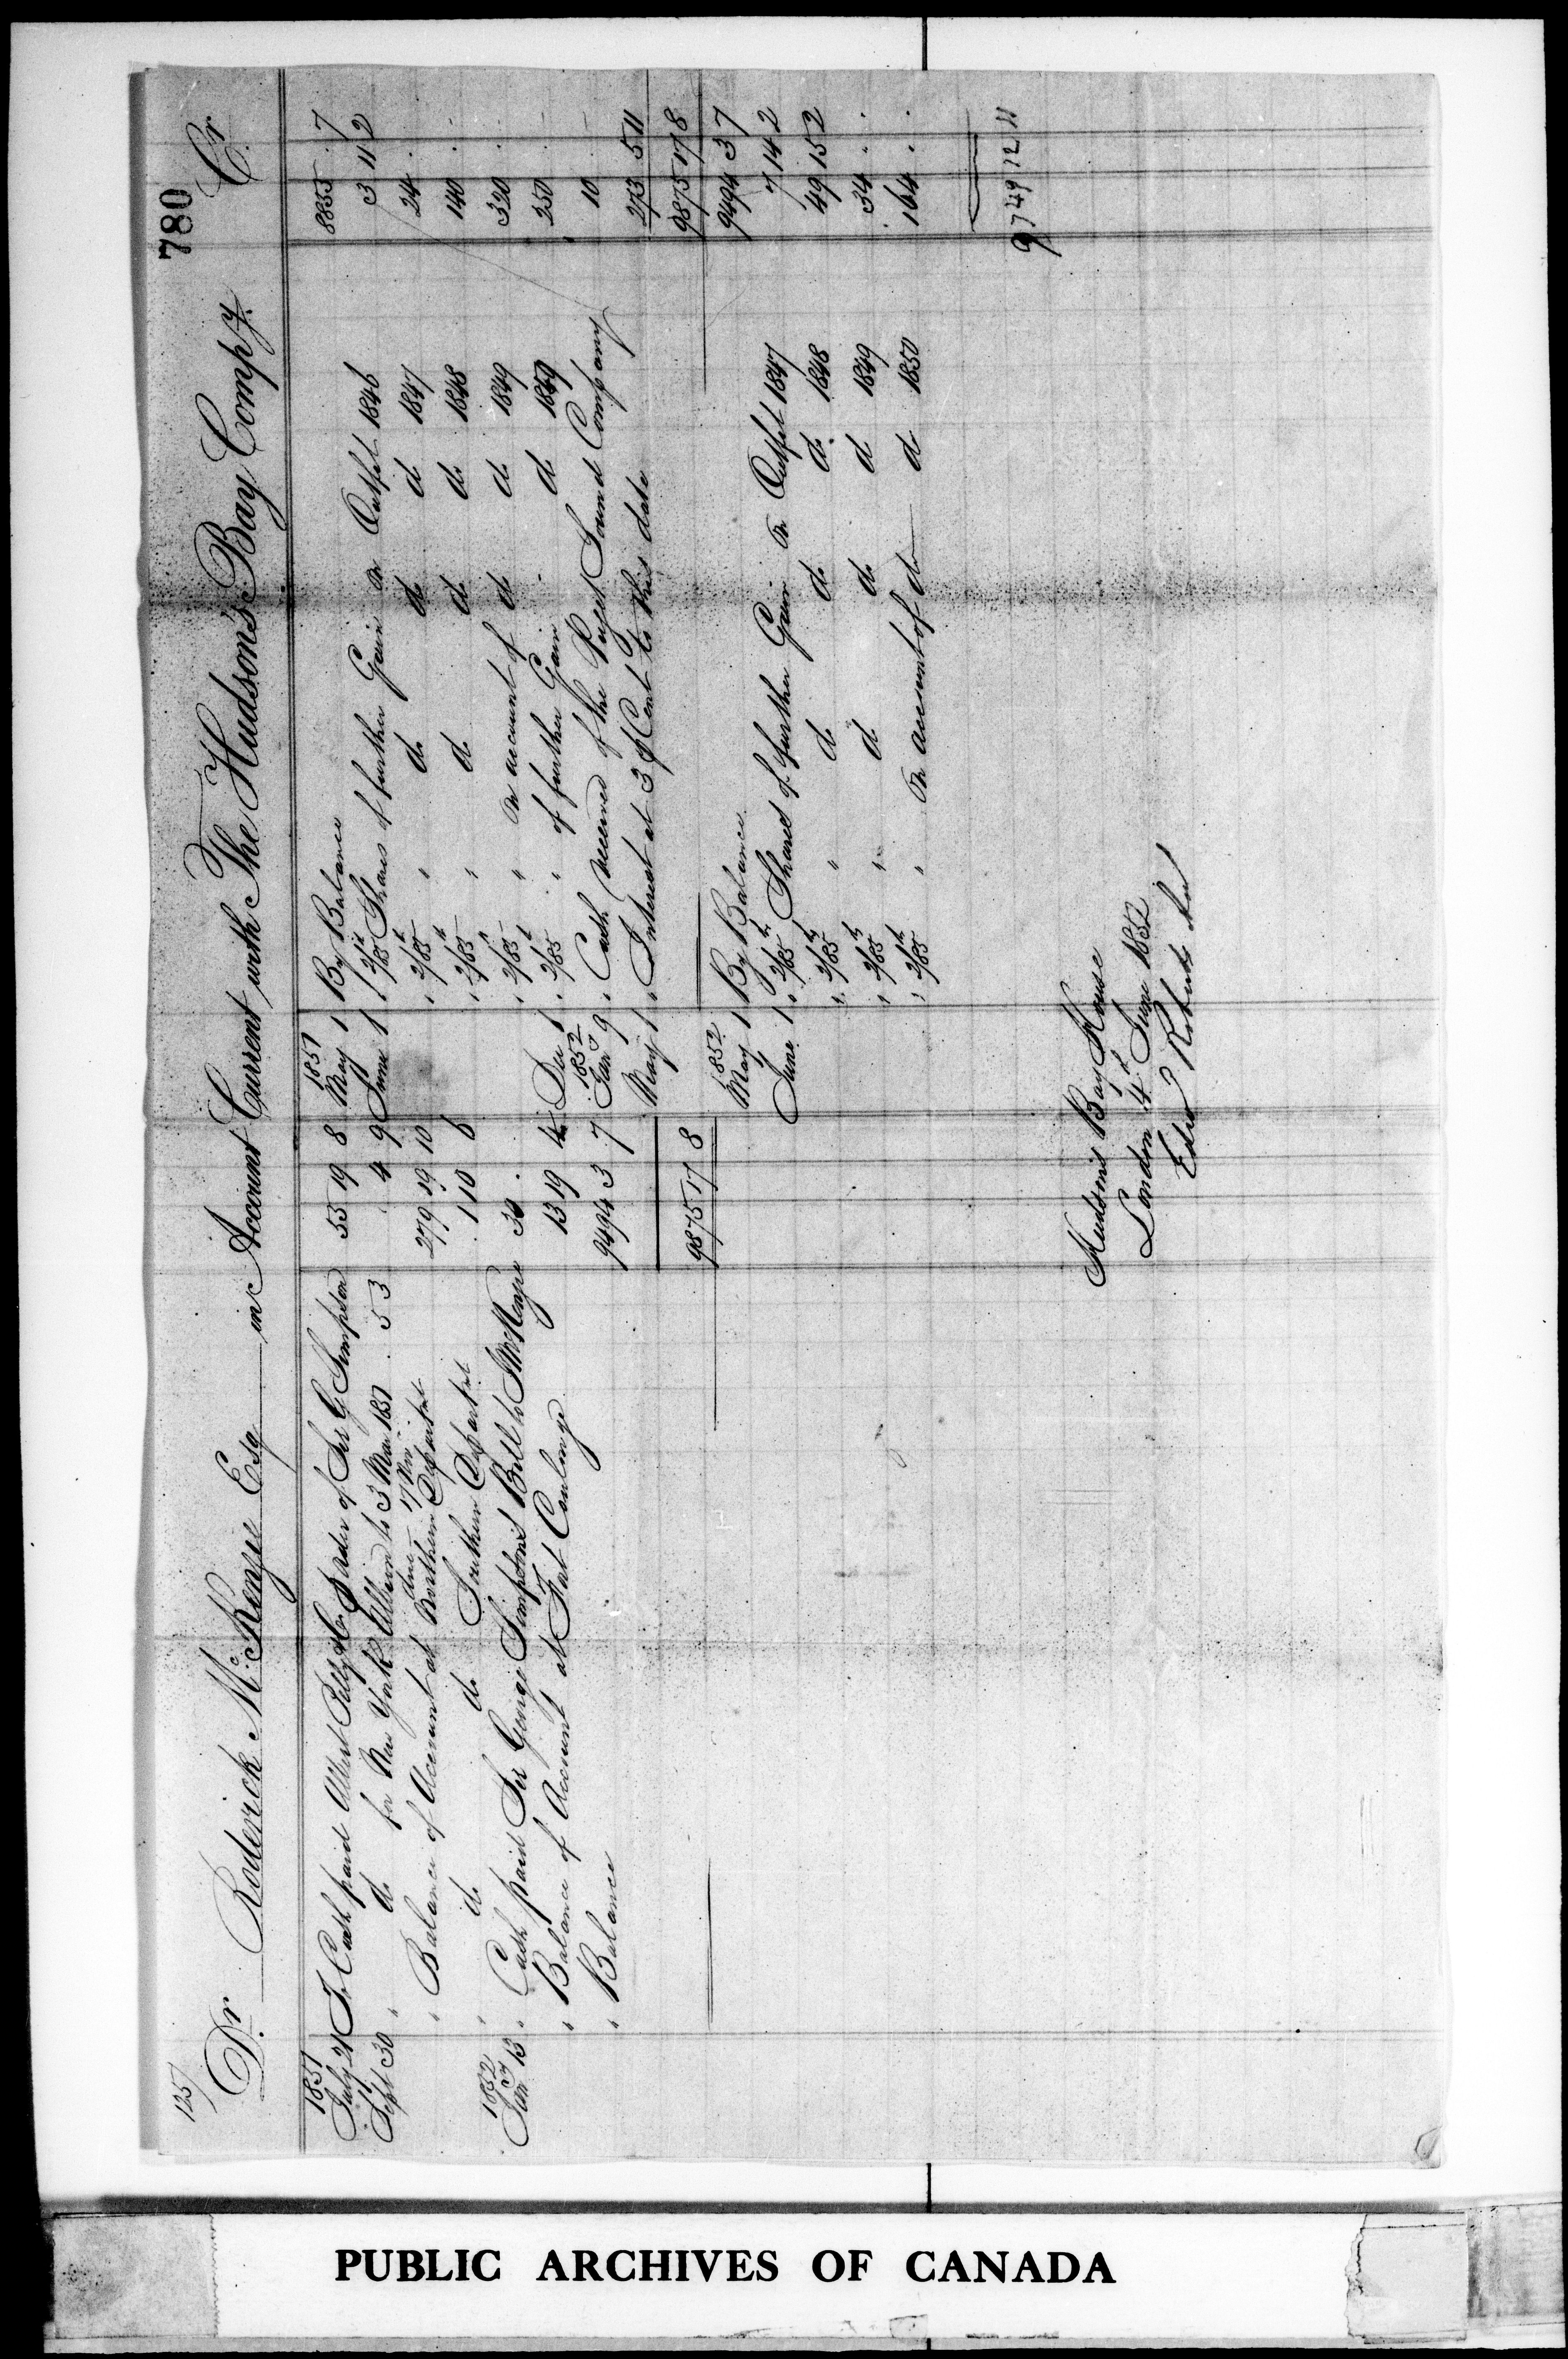 780
125/
Dr Roderick McKenzie Esq in Account Current with The Hudson's Bay Compy. Cr
1851
July 21 To Cash paid Albert Pelly & Co Order of Sir G Simpson 53 19 8
Sept 30 " do for New York Albion to 3 Mar 1851 . 5 3 . 4 9
" Balance of Account at Northern Departmt 279 19 10
" do do Southern Departmt 1 10 6
1852
Jany 13 " Cash paid Sir George Simpson's Bill to J McKenzie 30 .
" Balance of Account at Fort Coulonge 13 19 4
" Balance 9494 3 7
9875 17 8
1851
May 1 By Balance 8855 . 7
June 1 " 2/85th Shares of further Gain on Outfit 1846 3 11 2
" 2/85th " do do d 1847 24 . .
" 2/85th " d do do 1848 140 . .
" 2/85th " on account of do do 1849 320 . .
Dec 1 " 2/85th " of further Gain . d 1849 250 . .
1852
Jany 9 " Cash received of the Puget Sound Company 10 . .
May 1 " Interest at 3 P Cent to this date 273 5 11
9875 17 8
1852
May 1 By Balance 9494 3 7
June 1 " 2/85th Shares of further Gain on Outfit 1847 7 14 2
" 2/85th " do do do 1848 49 15 2
" 2/85th " d do d 1849 34 . .
" 2/85th " on account of do do 1850 164 . .
9749 12 11
Hudson's Bay House
London 4th June 1852
Edwd Roberts
PUBLIC ARCHIVES OF CANADA